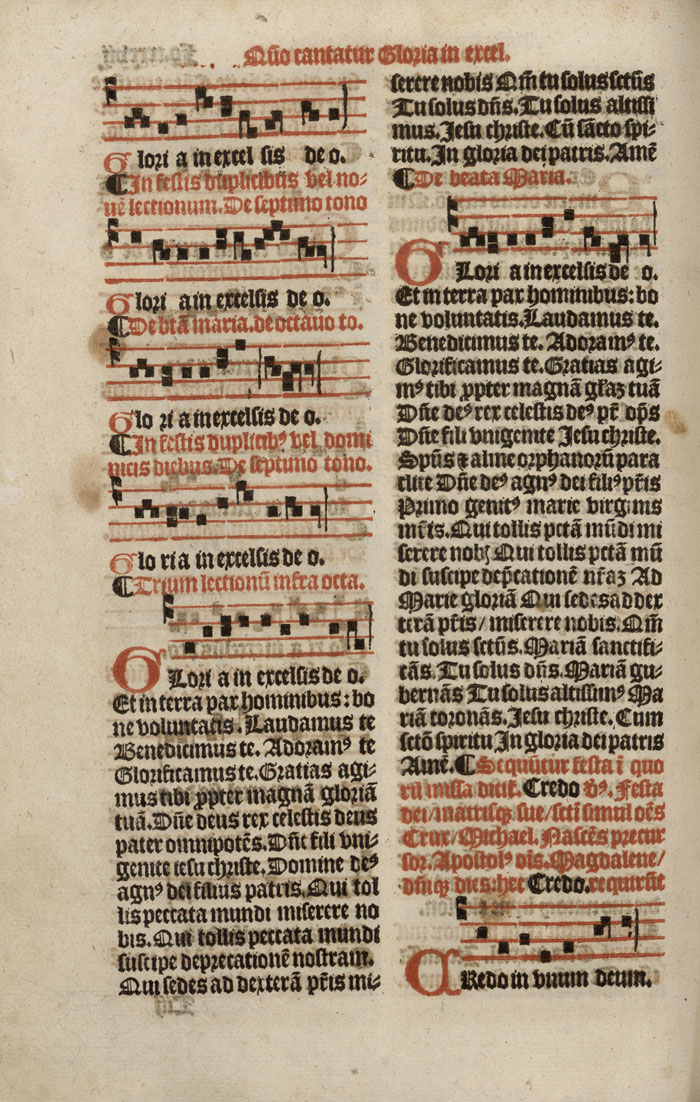 Qño cantatur Gloria in excel.
Glori a in excel sis de o.
¶In festis duplicibus vel no-
uē lectionum. De septimo tono
Glori a in excelsis de o.
¶De btā maria. de octauo to.
Glo ri a in excelsis de o.
¶In festis duplicibꝰ vel domi
nicis diebus. De septimo tono.
Glo ri a in excelsis de o.
¶Trium lectionū infra octa.
GLori a in excelsis de o.
Et in terra pax hominibus: bo
ne voluntatis. Laudamus te
Benedicimus te. Adoramꝰ te
Glorificamus te. Gratias agi-
mus tibi ꝓpter magnam gloriā
tuā. Dn̄e deus rex celestis deus
pater omnipotēs. Dn̄e fili vni-
genite iesu christe. Domine deꝰ
agnꝰ dei filius patris. Qui tol
lis peccata mundi miserere no
bis. Qui tollis peccata mundi
suscipe deprecationē nostram.
Qui sedes ad dexterā p̄tis mi-
serere nobis Qm̄ tu solus sctūs
Tu solus dn̄s. Tu solus altissi
mus. Jesu christe. Cū sācto spi-
ritu. In gloria dei patris. Amē
¶De beata Maria.
GLori a in excelsis de o.
Et in terra pax hominibus: bo
ne voluntatis. Laudamus te.
Benedicimus te. Adoramꝰ te.
Glorificamus te. Gratias agi-
mꝰ tibi ꝓpter magnā gl̄aꝫ tuā
Dn̄e deꝰ rex celestis deꝰ pr̄ op̄s
Dn̄e fili vnigenite Jesu christe.
Spūs & alme orphanorū para
clite Dn̄e deꝰ agnꝰ dei filiꝰ p̄tis
Primo genitꝰ marie virginis
mr̄is. Qui tollis pctā mūdi mi
serere nobꝭ Qui tollis pctā mū
di suscipe dep̄cationē nr̄aꝫ Ad
Marie gloriā Qui sedes ad dex
terā p̄tis/ miserere nobis. Qm̄
tu solus sctūs. Mariā sanctifi-
cās. Tu solus dn̄s. Mariā gu-
bernās Tu solus altissimꝰ Ma
riā coronās. Jesu christe. Cum
sctō spiritu In gloria dei patris
Amē. ¶Sequūtur festa ī quo
rū missa dicit̄. Credo vꝰ. Festa
dei/ matrisqꝫ sue/ sctī simul oēs
Crux/ Michael. Nascēs precur
sor. Apostolꝰ ois. Magdalene/
dn̄iqꝫ dies: hec Credo. requirūt
CRedo in vnum deum.